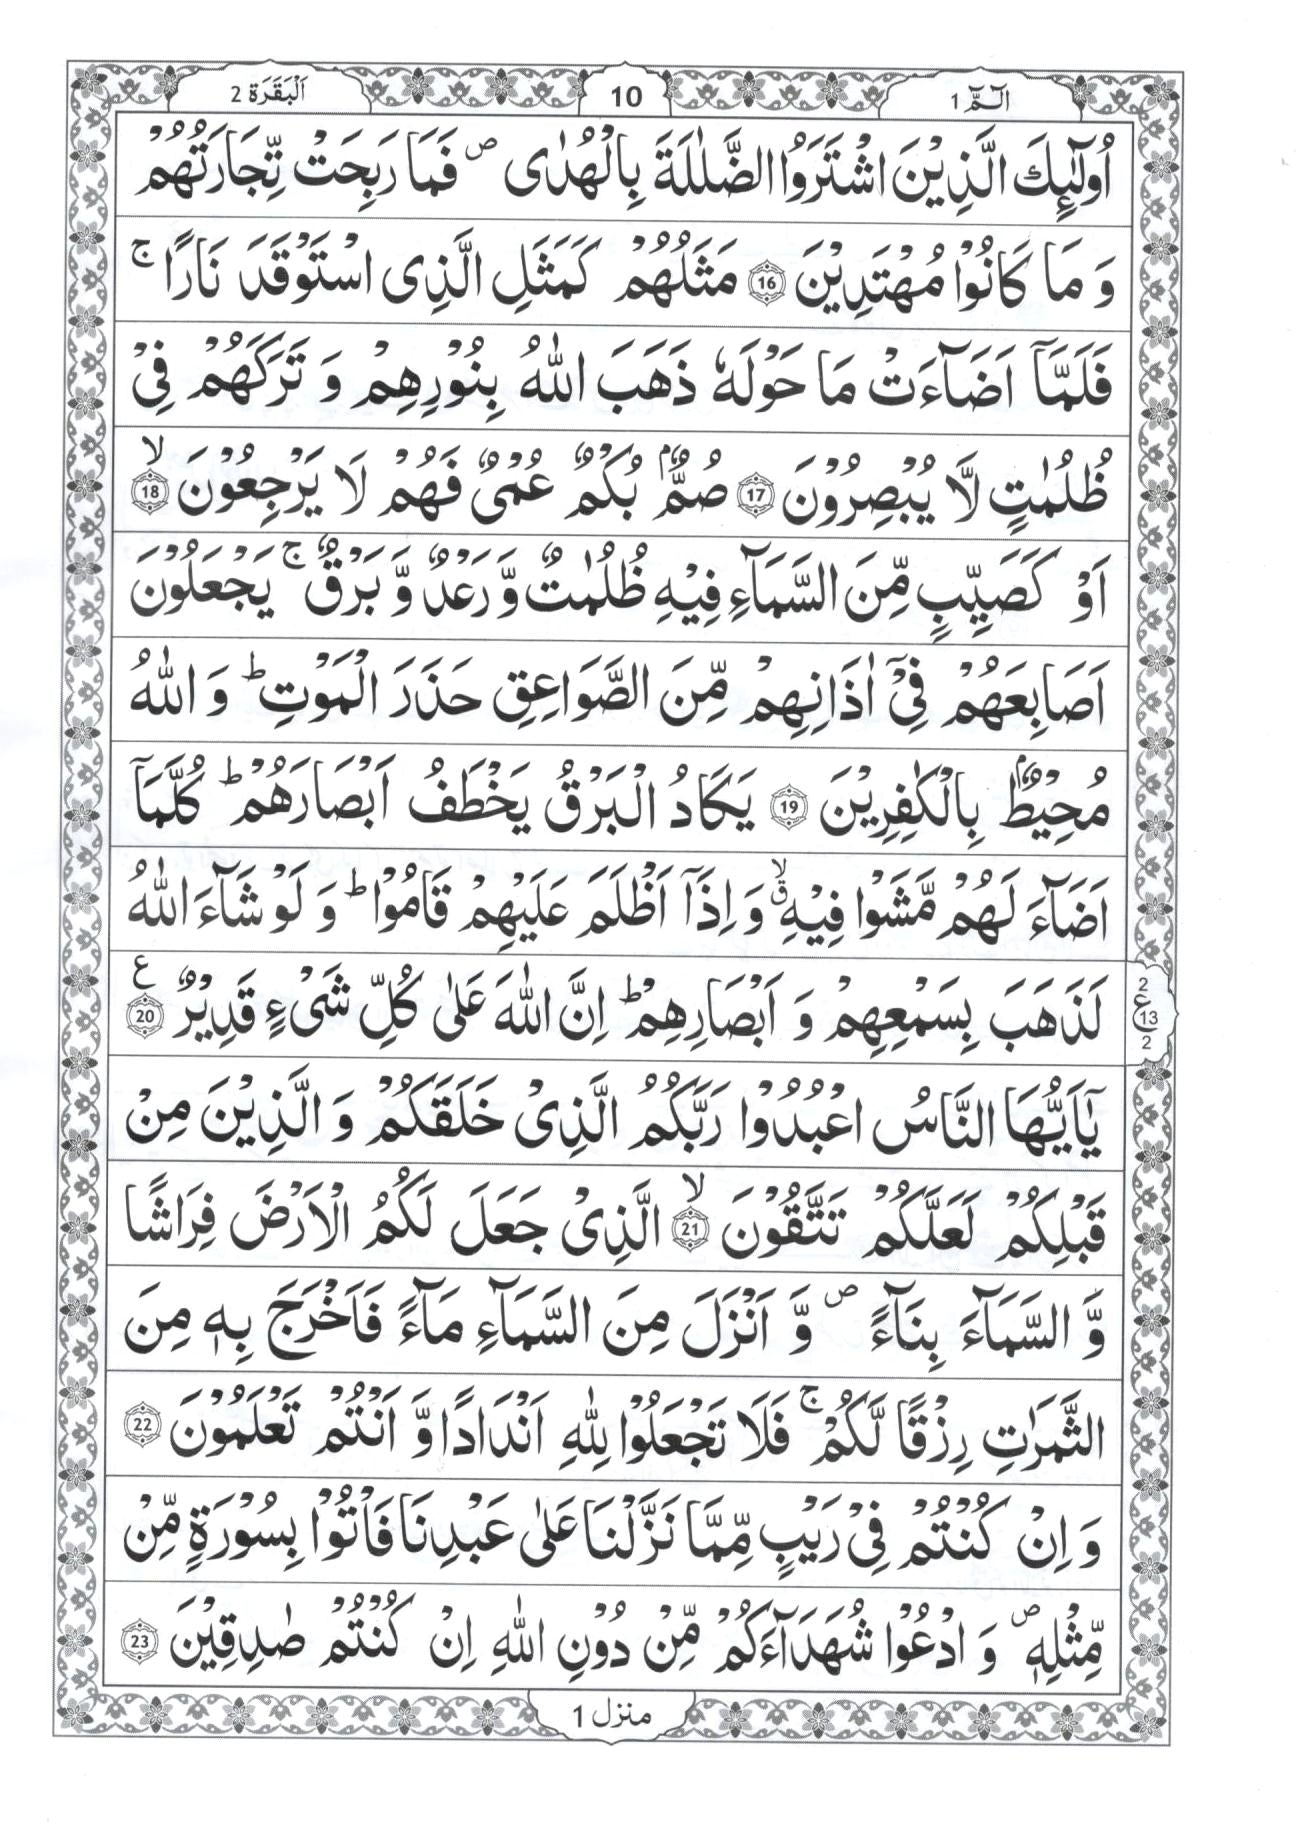 اَلْبَقَرَة 2
10
الٓمّٓ 1
اُولٰٓئِكَ الَّذِيْنَ اشْتَرَوُا الضَّلٰلَةَ بِالْهُدٰى ۪ فَمَا رَبِحَتْ تِّجَارَتُهُمْ
وَ مَا كَانُوْا مُهْتَدِيْنَ 16 مَثَلُهُمْ كَمَثَلِ الَّذِى اسْتَوْقَدَ نَارًا ۚ
فَلَمَّاۤ اَضَآءَتْ مَا حَوْلَهٗ ذَهَبَ اللّٰهُ بِنُوْرِهِمْ وَ تَرَكَهُمْ فِىْ
ظُلُمٰتٍ لَّا يُبْصِرُوْنَ 17 صُمٌّۢ بُكْمٌ عُمْىٌ فَهُمْ لَا يَرْجِعُوْنَ ۙ 18
اَوْ كَصَيِّبٍ مِّنَ السَّمَآءِ فِيْهِ ظُلُمٰتٌ وَّ رَعْدٌ وَّ بَرْقٌ ۚ يَجْعَلُوْنَ
اَصَابِعَهُمْ فِىْۤ اٰذَانِهِمْ مِّنَ الصَّوَاعِقِ حَذَرَ الْمَوْتِ ؕ وَ اللّٰهُ
مُحِيْطٌۢ بِالْكٰفِرِيْنَ 19 يَكَادُ الْبَرْقُ يَخْطَفُ اَبْصَارَهُمْ ؕ كُلَّمَاۤ
اَضَآءَ لَهُمْ مَّشَوْا فِيْهِ ۙۗ وَ اِذَاۤ اَظْلَمَ عَلَيْهِمْ قَامُوْا ؕ وَ لَوْ شَآءَ اللّٰهُ
لَذَهَبَ بِسَمْعِهِمْ وَ اَبْصَارِهِمْ ؕ اِنَّ اللّٰهَ عَلٰى كُلِّ شَىْءٍ قَدِيْرٌ ع 20
2 ع 13 2
يٰۤاَيُّهَا النَّاسُ اعْبُدُوْا رَبَّكُمُ الَّذِىْ خَلَقَكُمْ وَ الَّذِيْنَ مِنْ
قَبْلِكُمْ لَعَلَّكُمْ تَتَّقُوْنَ ۙ 21 الَّذِىْ جَعَلَ لَكُمُ الْاَرْضَ فِرَاشًا
وَّ السَّمَآءَ بِنَآءً ۪ وَّ اَنْزَلَ مِنَ السَّمَآءِ مَآءً فَاَخْرَجَ بِهٖ مِنَ
الثَّمَرٰتِ رِزْقًا لَّكُمْ ۚ فَلَا تَجْعَلُوْا لِلّٰهِ اَنْدَادًا وَّ اَنْتُمْ تَعْلَمُوْنَ 22
وَ اِنْ كُنْتُمْ فِىْ رَيْبٍ مِّمَّا نَزَّلْنَا عَلٰى عَبْدِنَا فَاْتُوْا بِسُوْرَةٍ مِّنْ
مِّثْلِهٖ ۪ وَ ادْعُوْا شُهَدَآءَكُمْ مِّنْ دُوْنِ اللّٰهِ اِنْ كُنْتُمْ صٰدِقِيْنَ 23
منزل 1